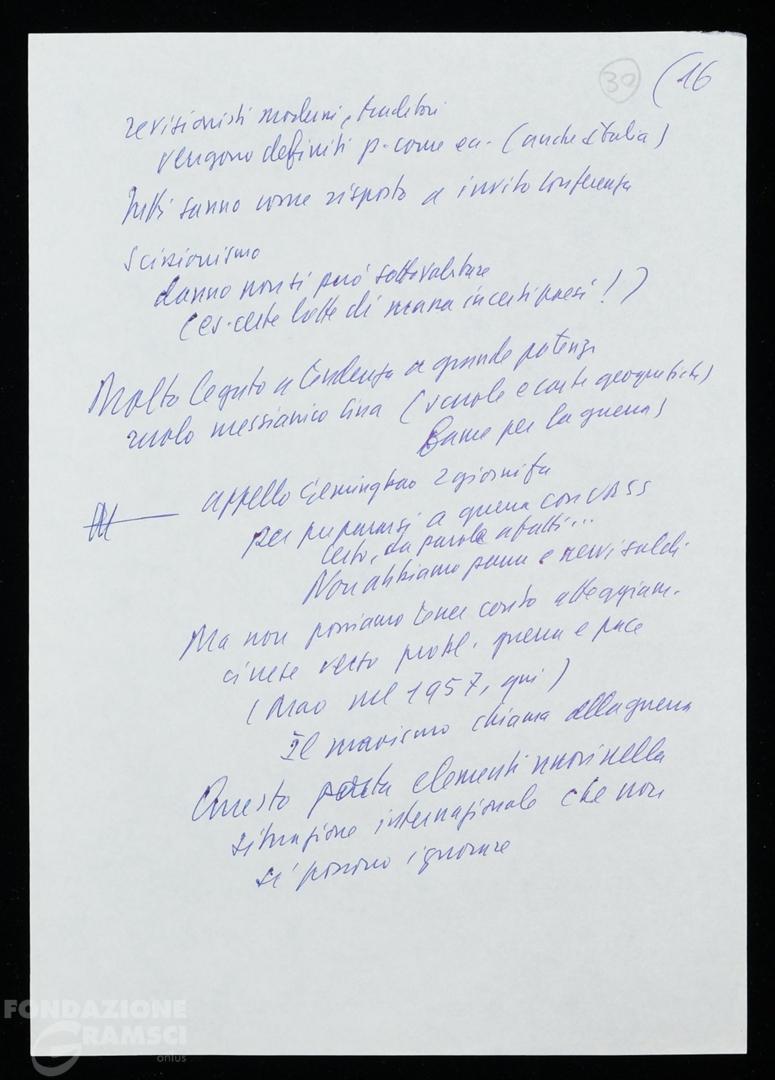 30 (16
revisionisti moderni, traditori
vengono definiti p. come ea. (anche Italia)
Tutti sanno come risposto a invito conferenza
Scissionismo
danno non si può sottovalutare
(es. certe lotte di massa in certi paesi!)
Molto legato a tendenza a grande potenza
ruolo messianico Cina (scuole e carte geografiche)
per la guerra)
appello 2 giorni fa
per prepararsi a guerra con URSS
Certo, da parole a fatti...
Non abbiamo paura e nervi saldi.
Ma non possiamo tener conto atteggiam.
cinese verso probl. guerra e pace
(Mao nel 1957, qui)
Il maoismo chiama alla guerra
Questo porta elementi nuovi nella
situazione internazionale che non
si possono ignorare
FONDAZIONE
GRAMSCI
onlus